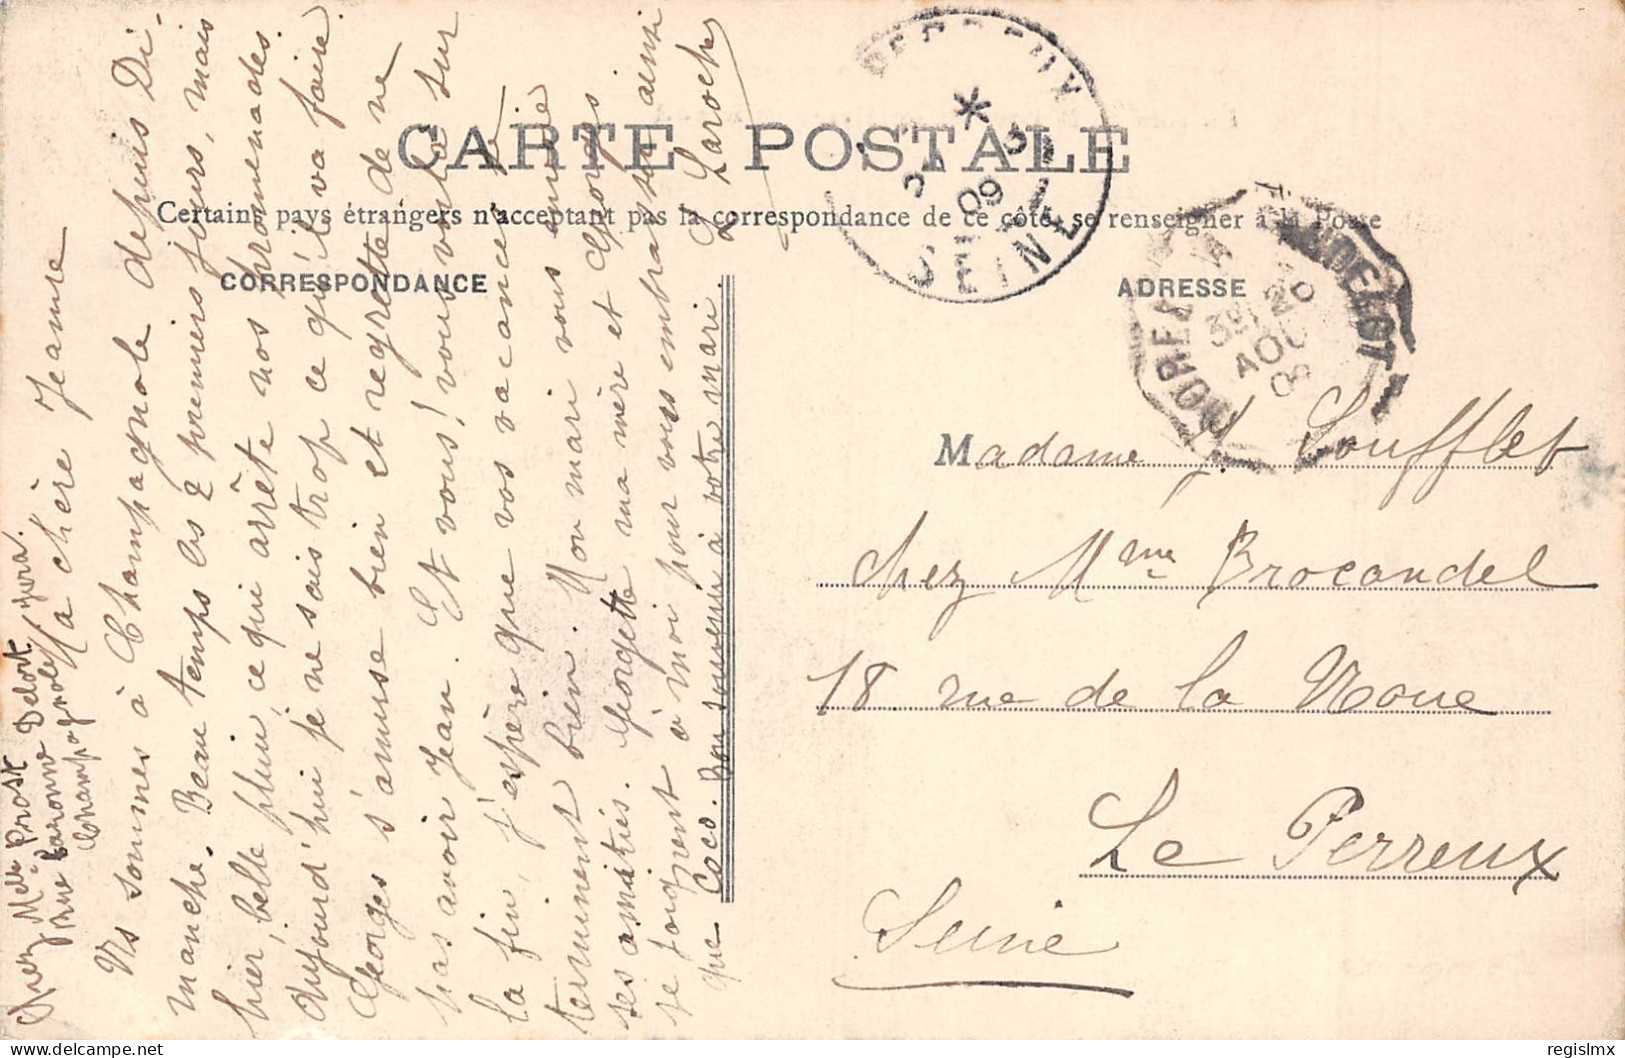 CARTE POSTALE
Certains pays étrangers n'acceptant pas la correspondance de ce côté, se renseigner à la Poste
CORRESPONDANCE
ADRESSE
Chez Melle Prost
rue Baronne Delort
Champagnole Jura.
Ma chère Jeanne
Ns sommes à Champagnole depuis Di-
manche. Beau temps les 2 premiers jours, mais
hier, belle pluie, ce qui arrête nos promenades.
Aujourd'hui je ne sais trop ce qu'il va faire
Georges s'amuse bien et regrette de ne
pas avoir Jean. Et vous! vous voilà sur
la fin, j'espère que vos vacances se
terminent bien. Mon mari vous envoie
ses amitiés. Georgette ma mère et Georges
se joignent à moi pour vous embrasser ainsi
que Coco. Bon souvenir à votre mari. Y Laroche
Madame J. Soufflet
chez Mme Brocandel
18 rue de la Noue
Le Perreux
Seine
SEINE
09
ANDELOT
AOU
regislmx